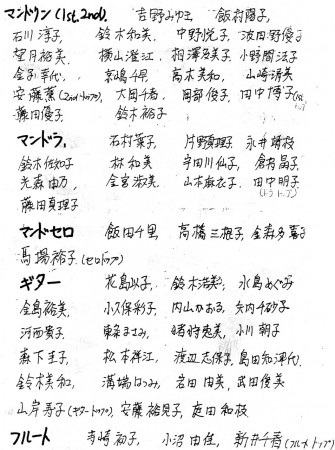 マンドリン (1st, 2nd). 吉野みゆき 飯村陽子
石川淳子 鈴木和美 中野悦子 波田野優子
望月裕美 横山澄江 相澤友美子 小野間法子
金子幸代 京嶋千早 高木美和 山崎清美
安藤薫 (2ndトップ) 大岡千香 岡部俊子 田中博子
藤田優子 鈴木裕子
マンドラ. 石村葉子 片野夏理子 永井靖枝
鈴木佐知子 林和美 宇田川仙子 倉有晶子
光森由乃 金宮淑美 山本麻衣子 田中明子
(ドラトップ)
藤田真理子
マンドセロ 飯田千里 高橋三根子 金森多喜子
馬場裕子 (セロトップ)
ギター 花島以子 鈴木浩美 水島めぐみ
金島裕美 小久保彩子 内山かおる 矢内千砂子
河西貴子 まさみ 緒特恵美 小川朝子
森下圭子 松本祥江 渡辺志保子 島田知津代
鈴木美和 溝端はつみ 岩田由美 武田俊美
山岸寿子 (ギタートップ) 安藤裕見子 直田和枝
フルート 寺崎初子, 小沼由佳, 新井千香 (フルートトップ)